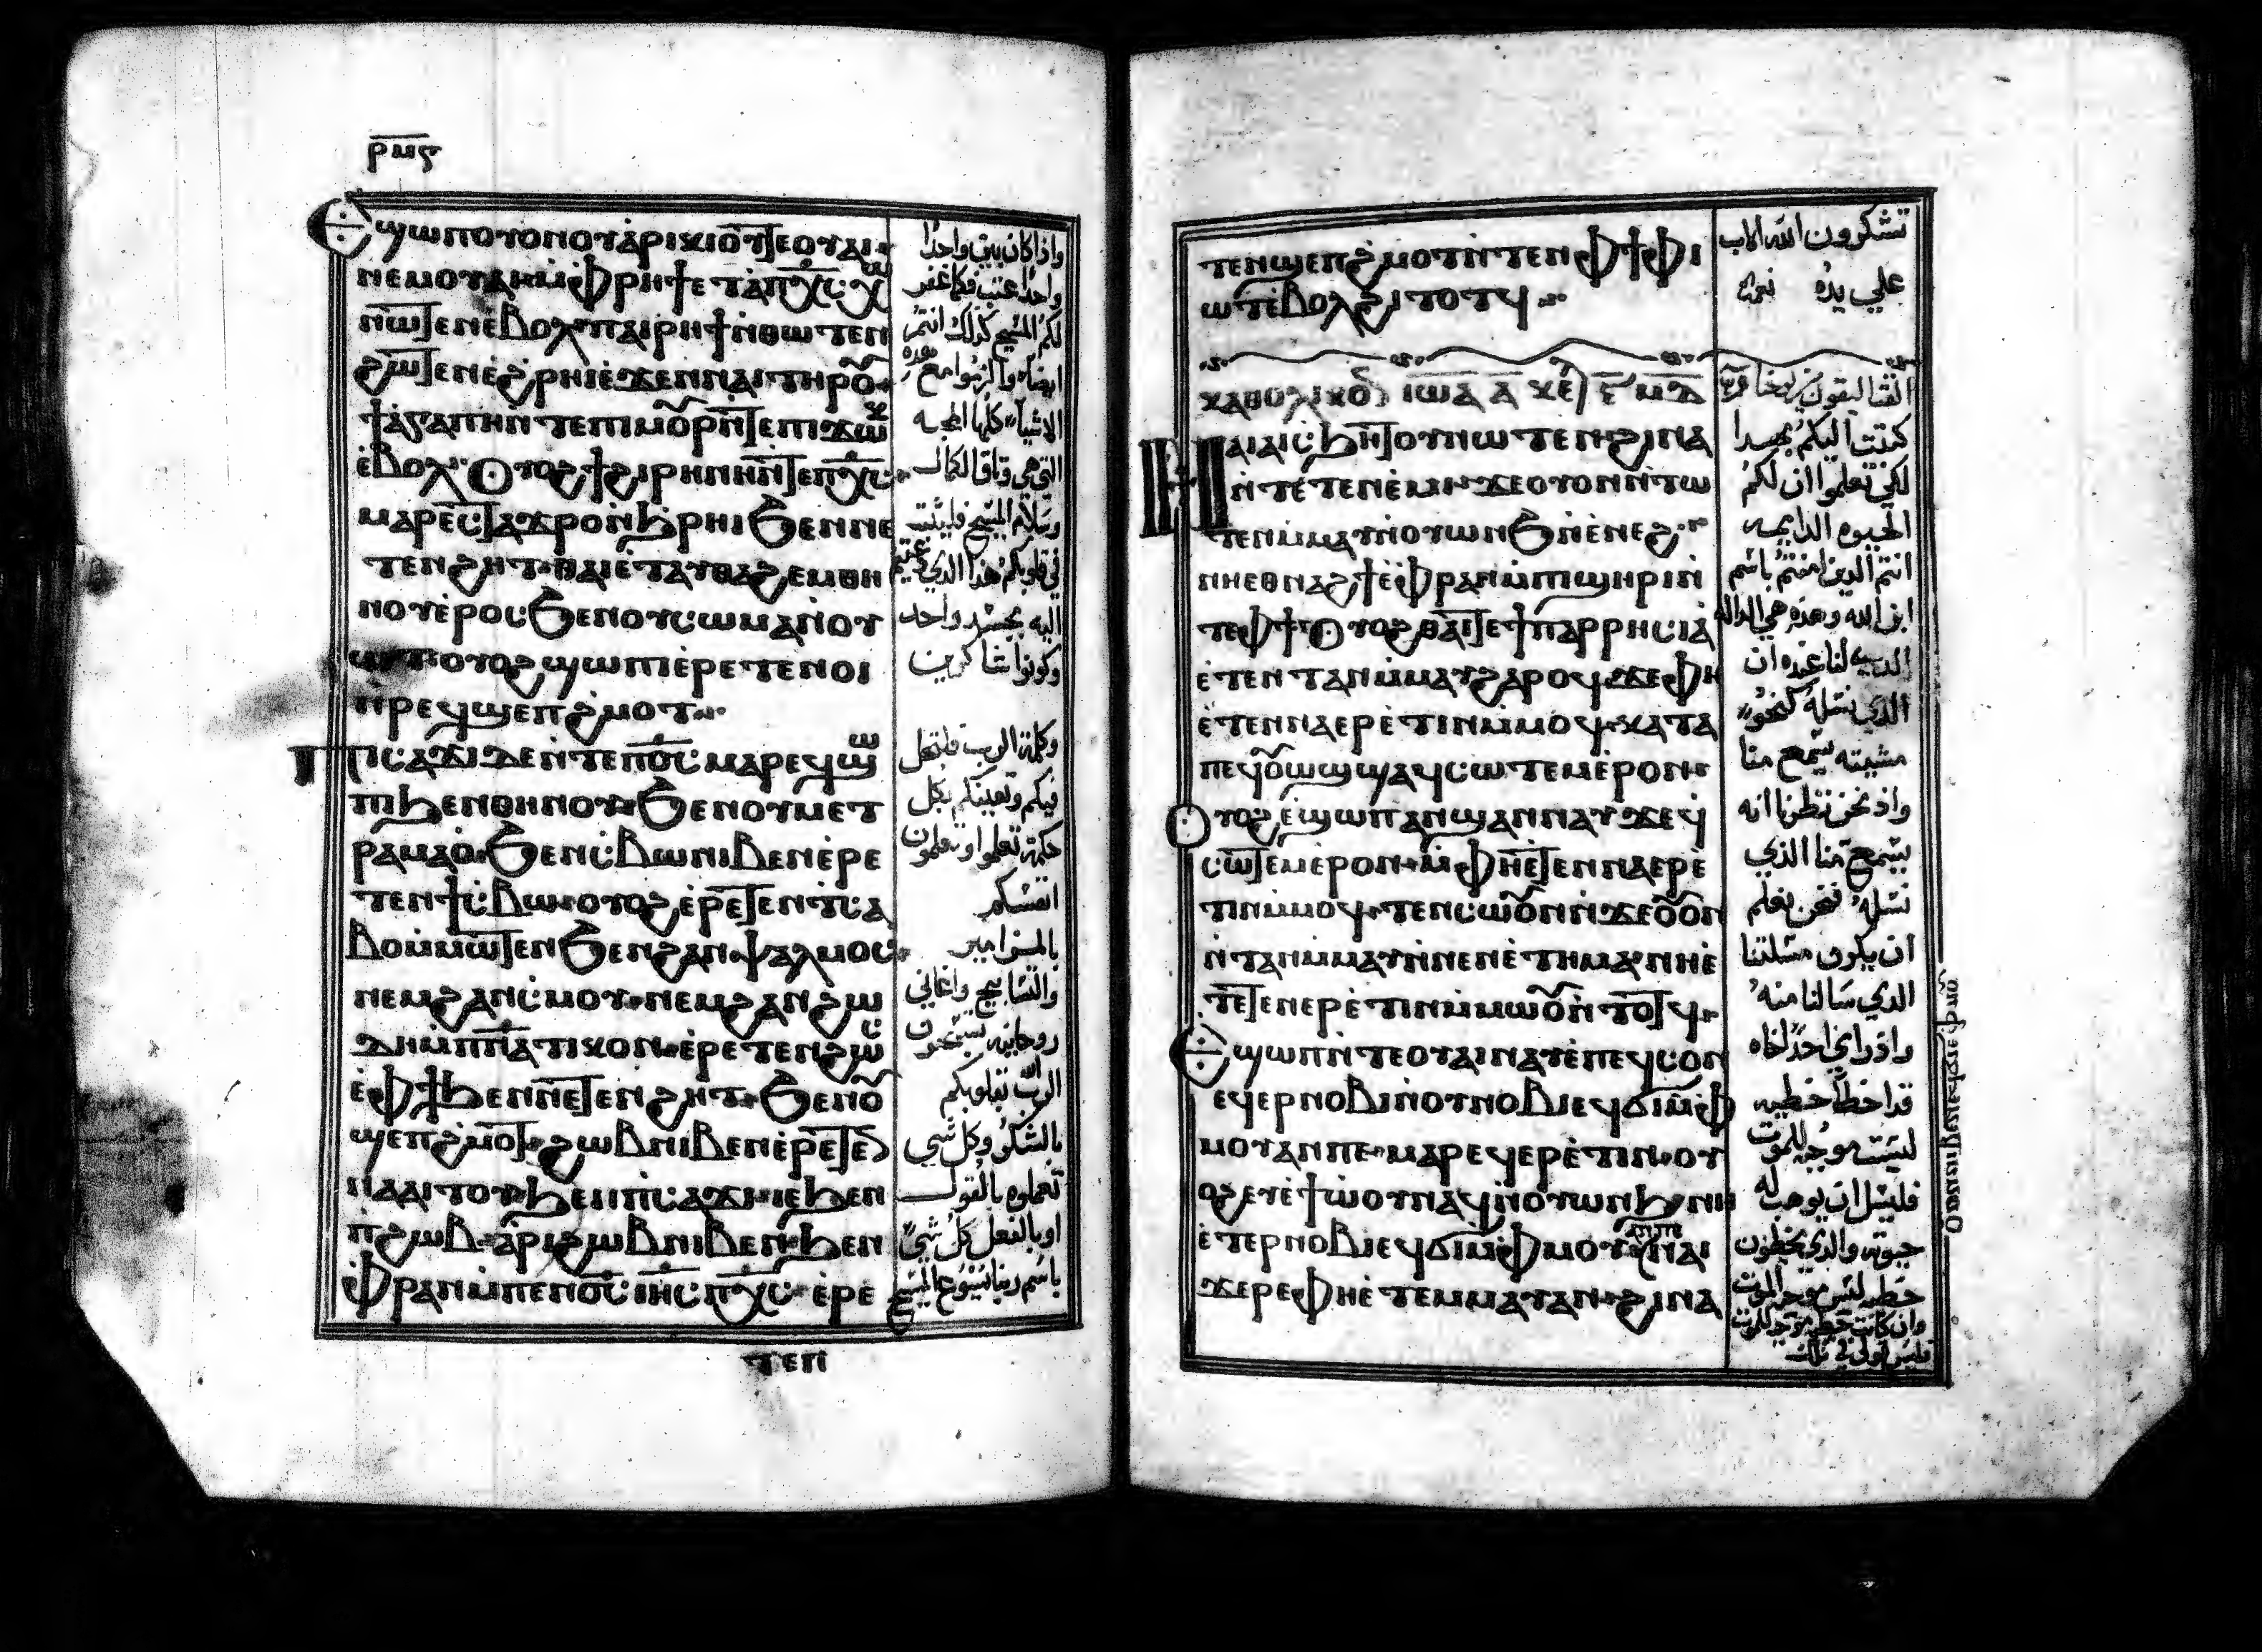 ⲣⲙⲋ
Ⲉϣⲱⲡ ⲟⲩⲟⲛ ⲟⲩⲁⲣⲓⲕⲓ ⲟⲩⲧⲉ ⲟⲩⲁⲓ
ⲛⲉⲙ ⲟⲩⲁⲓ ⲙ̀ⲫⲣⲏϯ ⲉⲧⲁ ⲡⲭ̅ⲥ̅ ⲭⲱ
ⲛⲱⲧⲉⲛ ⲉ̀ⲃⲟⲗ ⲡⲁⲓⲣⲏϯ ⲛ̀ⲑⲱⲧⲉⲛ
ϩⲱⲧⲉⲛ ⲉ̀ϩⲣⲏⲓ ⲉ̀ϫⲉⲛ ⲛⲁⲓ ⲧⲏⲣⲟⲩ
ϯⲁ̀ⲅⲁⲡⲏ ⲛ̀ⲧⲉ ⲡⲓⲙⲟⲩⲣ ⲛ̀ⲧⲉ ⲡⲓϫⲱⲕ
ⲉ̀ⲃⲟⲗ Ⲟⲩⲟϩ ϯϩⲓⲣⲏⲛⲏ ⲛ̀ⲧⲉ ⲡⲭ̅ⲥ̅
ⲙⲁⲣⲉⲥⲧⲁϫⲣⲟ ⲛ̀ϧⲣⲏⲓ ϧⲉⲛ ⲛⲉ
ⲧⲉⲛϩⲏⲧ ⲑⲁⲓ ⲉ̀ⲧⲁⲩⲑⲁϩⲉⲙ ⲑⲏ
ⲛⲟⲩ ⲉ̀ⲣⲟⲥ ϧⲉⲛ ⲟⲩⲥⲱⲙⲁ ⲛ̀ⲟⲩ
ⲱⲧ ⲟⲩⲟϩ ϣⲱⲡⲓ ⲉ̀ⲣⲉⲧⲉⲛⲟⲓ
ⲛ̀ⲣⲉϥϣⲉⲡϩ̀ⲙⲟⲧ
Ⲡⲓⲥⲁϫⲓ ⲇⲉ ⲛ̀ⲧⲉ ⲡⲟ̅ⲥ̅ ⲙⲁⲣⲉϥϣⲱ
ⲡⲓ ϧⲉⲛ ⲑⲏⲛⲟⲩ ϧⲉⲛ ⲟⲩⲙⲉⲧ
ⲣⲁⲙⲁⲟ̀ ϧⲉⲛ ⲥ̀ⲃⲱ ⲛⲓⲃⲉⲛ ⲉ̀ⲣⲉ
ⲧⲉⲛϯⲥ̀ⲃⲱ ⲟⲩⲟϩ ⲉ̀ⲣⲉⲧⲉⲛⲧ̀ⲥⲁ
ⲃⲟ ⲙ̀ⲙⲱⲧⲉⲛ ϧⲉⲛ ϩⲁⲛⲯⲁⲗⲙⲟⲥ
ⲛⲉⲙ ϩⲁⲛⲥ̀ⲙⲟⲩ ⲛⲉⲙ ϩⲁⲛϩⲱ
ⲇⲏ ⲙ̀ⲡ̅ⲛ̅ⲁ̅ⲧⲓⲕⲟⲛ ⲉ̀ⲣⲉⲧⲉⲛϩⲱⲥ
ⲉ̀ⲫϯ ϧⲉⲛ ⲛⲉⲧⲉⲛϩⲏⲧ ϧⲉⲛ ⲟⲩ
ϣⲉⲡϩ̀ⲙⲟⲧ ϩⲱⲃ ⲛⲓⲃⲉⲛ ⲉ̀ⲣⲉⲧⲉ
ⲛⲁⲁⲓⲧⲟⲩ ϧⲉⲛ ⲡ̀ⲥⲁϫⲓ ⲓⲉ ϧⲉⲛ
ⲡ̀ϩⲱⲃ ⲁⲣⲓ ϩⲱⲃ ⲛⲓⲃⲉⲛ ϧⲉⲛ
ⲫ̀ⲣⲁⲛ ⲙ̀ⲡⲉⲛⲟ̅ⲥ̅ ⲓⲏ̅ⲥ̅ ⲡⲭ̅ⲥ̅ ⲉ̀ⲣⲉ
ⲧⲉⲛ
واذا كان بين واحدا
واحدا عتب فكما غفر
لكم المسيح كذلك انتم
ايضا والزموا مع هذه
الاشيا كلها المحبه
التي هي وثاق الكمال
وسلام المسيح فليثبت
في قلوبكم هذا الذي دعيتم
اليه بجسد واحد
وكونوا شاكرين
وكلمة الرب فلتحل
فيكم وتعينكم بكل
حكمة تعلموا وتعلمون
انفسكم
بالمزامير
والتسابيح واغاني
روحانيه تسبحون
الله بقلوبكم
بالشكر وكل شي
تعملوه بالقول
او بالفعل كل شي
باسم ربنا يسوع المسيح
ⲧⲉⲛϣⲉⲡϩ̀ⲙⲟⲧ ⲛ̀ⲧⲉⲛ ⲫϯ ⲫⲓ
ⲱⲧ ⲉ̀ⲃⲟⲗ ϩⲓⲧⲟⲧϥ
ⲕⲁⲑⲟⲗⲓⲕⲟⲛ ⲓⲱⲁ ⲁ̅ ⲕⲉ
Ⲛⲁⲓ ⲁⲓⲥ̀ϧⲏⲧⲟⲩ ⲛⲱⲧⲉⲛ ϩⲓⲛⲁ
ⲛ̀ⲧⲉⲧⲉⲛⲉ̀ⲙⲓ ϫⲉ ⲟⲩⲟⲛ ⲛ̀ⲧⲱ
ⲧⲉⲛ ⲙ̀ⲙⲁⲩ ⲛ̀ⲟⲩⲱⲛϧ ⲛ̀ⲉ̀ⲛⲉϩ
ⲛⲏ ⲉⲑⲛⲁϩϯ ⲉ̀ⲫ̀ⲣⲁⲛ ⲙ̀ⲡ̀ϣⲏⲣⲓ ⲛ̀
ⲧⲉ ⲫϯ Ⲟⲩⲟϩ ⲑⲁⲓ ⲧⲉ ϯⲡⲁⲣⲣⲏⲥⲓⲁ
ⲉ̀ⲧⲉⲛⲧⲁⲛ ⲙ̀ⲙⲁⲩ ϩⲁⲣⲟϥ ϫⲉ ⲫⲏ
ⲉ̀ⲧⲉⲛⲛⲁⲉⲣⲉ̀ⲧⲓⲛ ⲙ̀ⲙⲟϥ ⲕⲁⲧⲁ
ⲡⲉϥⲟⲩⲱϣ ϣⲁϥⲥⲱⲧⲉⲙ ⲉ̀ⲣⲟⲛ
Ⲟⲩⲟϩ ⲉ̀ϣⲱⲡ ⲁⲛϣⲁⲛⲛⲁⲩ ϫⲉ ϥ
ⲥⲱⲧⲉⲙ ⲉ̀ⲣⲟⲛ ⲙ̀ⲫⲏ ⲉ̀ⲧⲉⲛⲛⲁⲉⲣⲉ̀
ⲧⲓⲛ ⲙ̀ⲙⲟϥ ⲧⲉⲛⲥⲱⲟⲩⲛ ϫⲉ ⲟⲩⲟⲛ
ⲛ̀ⲧⲁⲛ ⲙ̀ⲙⲁⲩ ⲛ̀ⲛⲉⲛⲉ̀ⲧⲏⲙⲁ ⲛⲏ ⲉ̀
ⲧⲉⲧⲉⲛⲉⲣⲉ̀ⲧⲓⲛ ⲙ̀ⲙⲱⲟⲩ ⲛ̀ⲧⲟⲧϥ
Ⲉϣⲱⲡ ⲛ̀ⲧⲉ ⲟⲩⲁⲓ ⲛⲁⲩ ⲉ̀ⲡⲉϥⲥⲟⲛ
ⲉϥⲉⲣⲛⲟⲃⲓ ⲛ̀ⲟⲩⲛⲟⲃⲓ ⲉϥϭⲓ ⲙ̀ⲫ
ⲙⲟⲩ ⲁⲛ ⲡⲉ ⲙⲁⲣⲉϥⲉⲣⲉ̀ⲧⲓⲛ ⲟⲩ
ⲟϩ ⲉⲩⲉ̀ϯ ⲱⲟⲩ ⲛⲁϥ ⲛ̀ⲟⲩⲱⲛϧ ⲛⲏ
ⲉ̀ⲧⲉⲣⲛⲟⲃⲓ ⲉϥϭⲓ ⲙ̀ⲫⲙⲟⲩ ⲁⲛ ⲡⲉ ⲛⲁⲓ
ϫⲉⲣⲉ ⲫⲏ ⲉ̀ⲧⲉⲙⲙⲁⲩ ⲁⲛ ϩⲓⲛⲁ
تشكرون الله الاب
علي يده نعمه
كتبت اليكم بهدا
لكي تعلموا ان لكم
الحيوه الدايمه
انتم الدين امنتم باسم
ابن الله وهذه هي الداله
الدي لنا عنده ان
الذي نسله كنحو
مشيته يسمع منا
واذ نحن نظرنا انه
يسمع منا الذي
نسله فنحن نعلم
ان يكون مسلتنا
الدي سالنا منه
واذ راي احدا اخاه
قد اخطا خطيه
ليست موجبه للموت
فليسل ان يوهب له
حيوة والدي يخطون
خطيه ليس موجبه الموت
وان كانت خطيه توجب للموت
فليس قولي في تلك